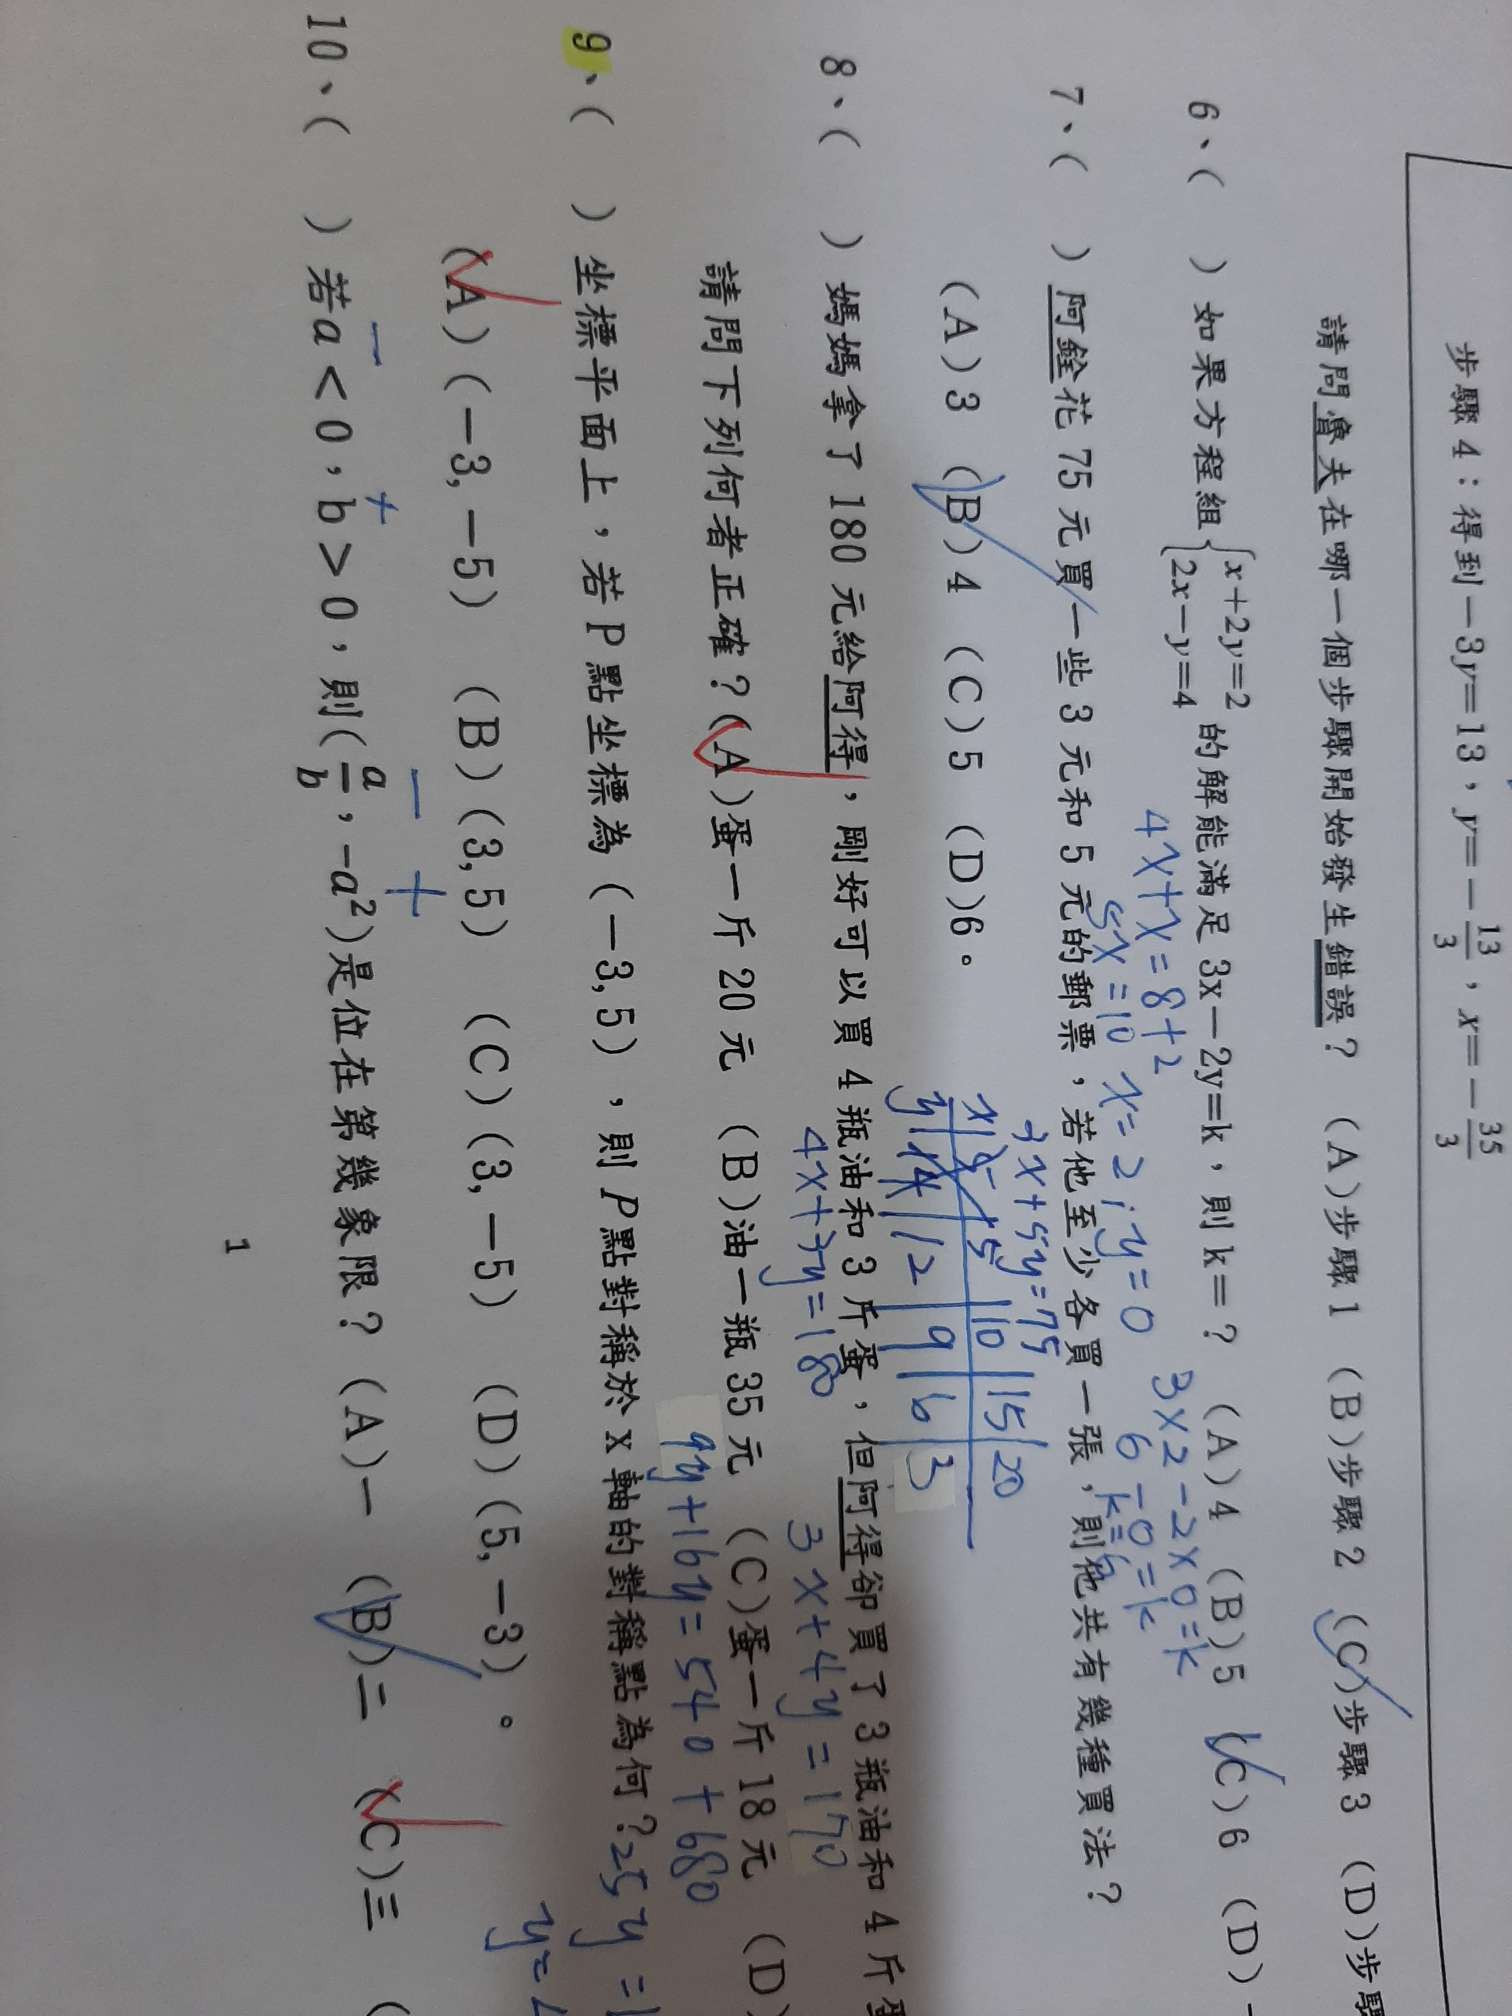 步驟4：得到－3y＝13，y＝－13/3，x＝－35/3
請問魯夫在哪一個步驟開始發生錯誤？ (A)步驟1 (B)步驟2 (C)步驟3 (D)步驟
6、( ) 如果方程組{x＋2y＝2 2x－y＝4 的解能滿足3x－2y＝k，則k＝？ (A)4 (B)5 (C)6 (D)
4x+x=8+2
5x=10 x=2, y=0
3×2-2×0=k
6-0=k
k=6
7、( ) 阿銓花75元買一些3元和5元的郵票，若他至少各買一張，則他共有幾種買法？
(A)3 (B)4 (C)5 (D)6。
3x+5y=75
x 5 10 15 20
y 12 9 6 3
8、( ) 媽媽拿了180元給阿得，剛好可以買4瓶油和3斤蛋，但阿得卻買了3瓶油和4斤蛋
4x+3y=180
3x+4y=170
請問下列何者正確？(A)蛋一斤20元 (B)油一瓶35元 (C)蛋一斤18元 (D)
9y+16y=540+680
25y=1
y=
9、( ) 坐標平面上，若P點坐標為(－3,5)，則P點對稱於x軸的對稱點為何？
(A)(－3,－5) (B)(3,5) (C)(3,－5) (D)(5,－3)。
－ ＋ － ＋
10、( ) 若a＜0，b＞0，則(a/b，-a²)是位在第幾象限？(A)一 (B)二 (C)三 (
1